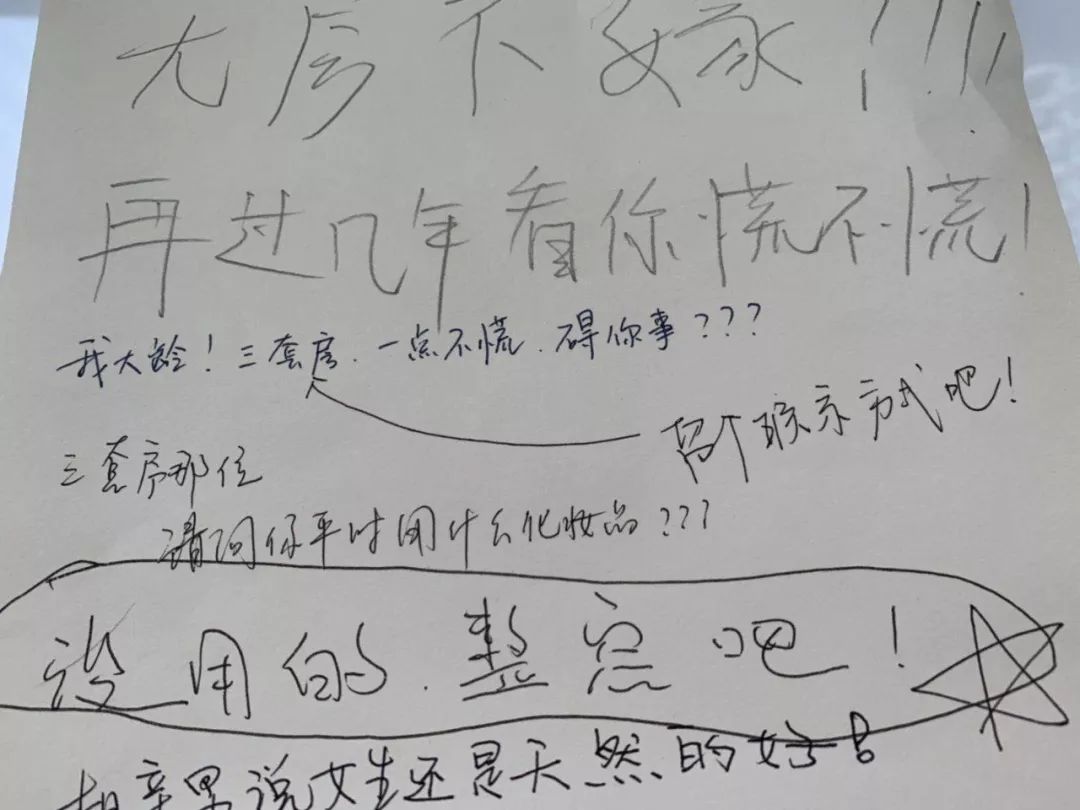 无房不嫁!!!!
再过几年看你慌不慌!
我大龄!三套房.一点不慌.碍你事???
留个联系方式吧!
三套房那位
请问你平时用什么化妆品???
没用的.整容吧!
相亲男说女生还是天然的好